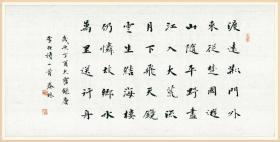 渡遠荊門外
來從楚國遊
山隨平野盡
江入大荒流
月下飛天鏡
雲生結海樓
仍憐故鄉水
萬里送行舟
歲次丁酉大雪錄唐
李白詩一首